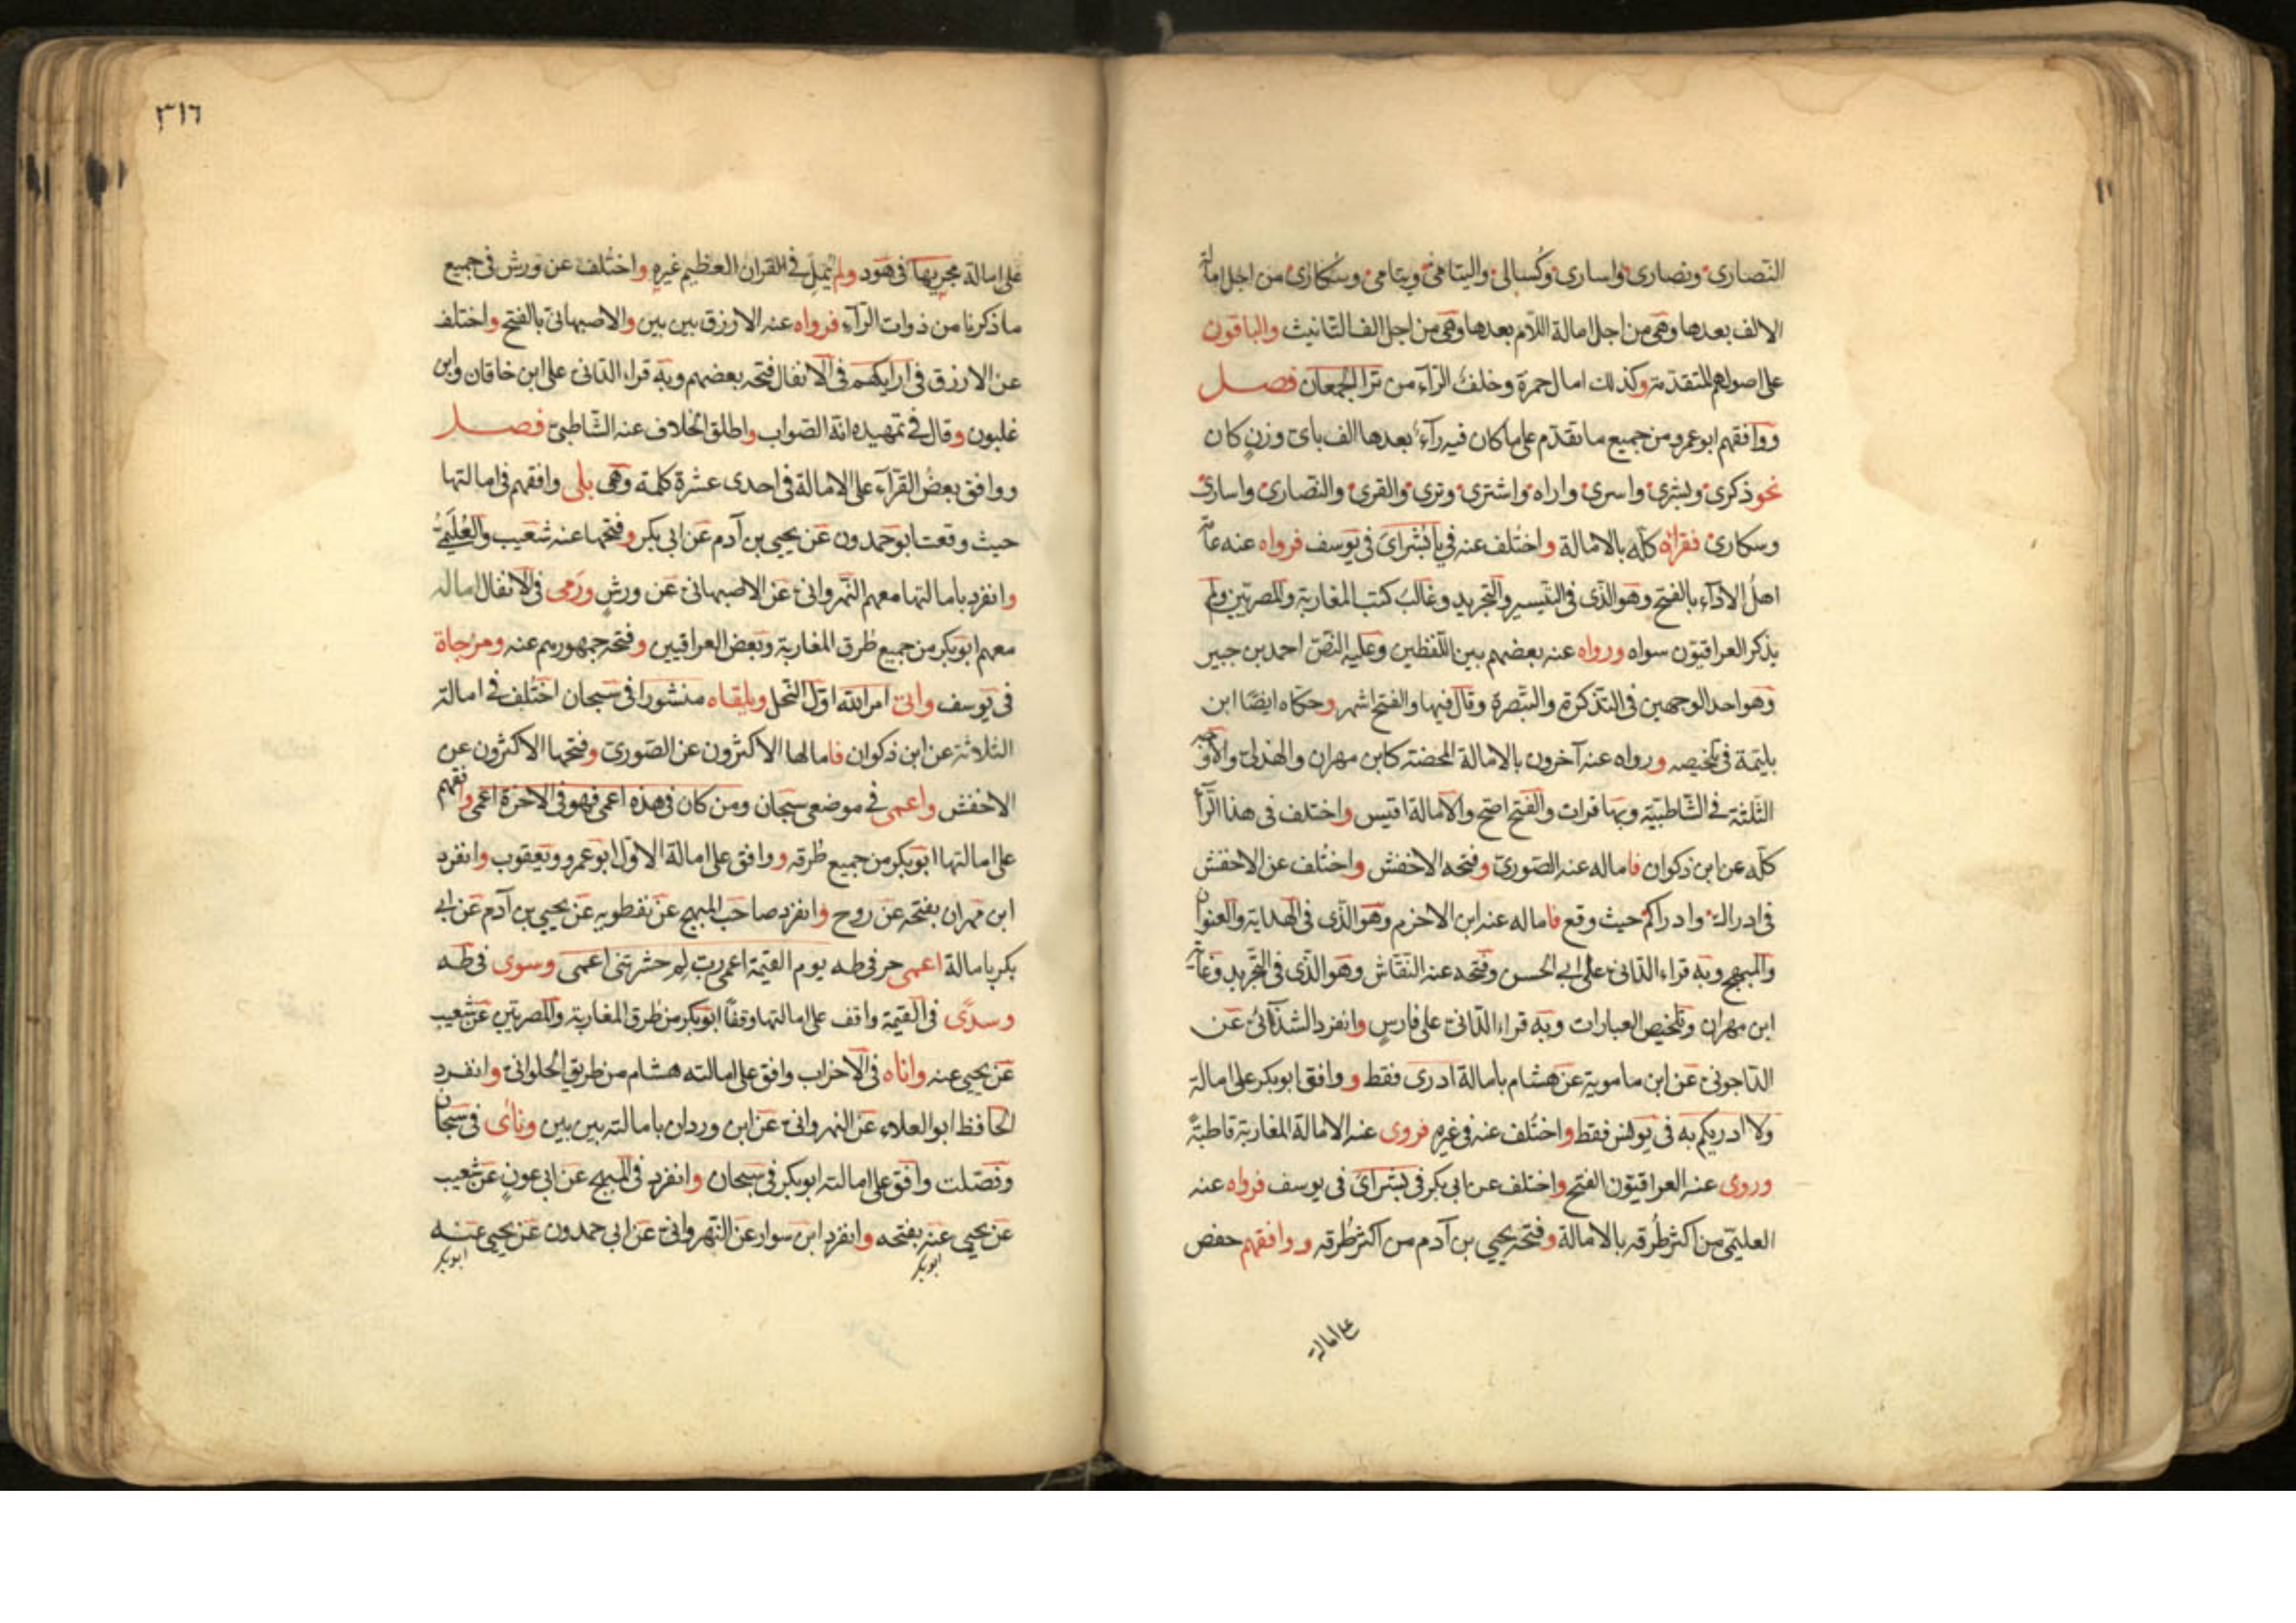 النصارى ونصارى واسارى وكسالى واليتامى ويتامى وسكارى من اجل امالة
الالف بعدها وهى من اجل امالة اللام بعدها وهى من اجل الف التانيث والباقون
على اصولهم المتقدمة وكذلك امال حمزة وخلف الرآء من ترا الجمعان فصل
ووافقهم ابو عمرو من جميع ما تقدم على ما كان فيه رآء بعدها الف باى وزن كان
نحو ذكرى وبشرى واسرى واراه واشترى وترى والقرى والنصارى واسارى
وسكارى فقراه كله بالامالة واختلف عنه في يا بشراى فى يوسف فرواه عنه عامة
اهل الادآء بالفتح وهو الذى فى التيسير والتجريد وغالب كتب المغاربة والمصريين ولم
يذكر العراقيون سواه ورواه عنه بعضهم بين اللفظين وعليه النص احمد بن جبير
وهو احد الوجهين فى التذكرة والتبصرة وقال فيها والفتح اشهر وحكاه ايضا ابن
بليمة فى تلخيصه ورواه عنه آخرون بالامالة المحضة كابن مهران والهذلى والاوجه
الثلثة فى الشاطبية وبها قرات والفتح اصح والامالة اقيس واختلف فى هذا الرآ
كله عن ابن ذكوان فاماله عنه الصورى وفتحه الاخفش واختلف عن الاخفش
فى ادراك وادراكم حيث وقع فاماله عنه ابن الاخرم وهو الذى فى الهداية والعنوان
والمبهج وبه قراء الدانى على ابى الحسن وفتحه عنه النقاش وهو الذى فى التجريد وغاية
ابن مهران وتلخيص العبارات وبه قراء الدانى على فارس وانفرد الشذائى عن
الداجونى عن ابن مامويه عن هشام بامالة ادرى فقط ووافق ابو بكر على امالة
ولا ادريكم به فى يونس فقط واختلف عنه فى غيره فروى عنه الامالة المغاربة قاطبة
وروى عنه العراقيون الفتح واختلف عن ابى بكر فى بشراى فى يوسف فرواه عنه
العليمى من اكثر طرقه بالامالة وفتحه يحيى بن آدم من اكثر طرقه ووافقهم حفص
على امالة
٣١٦
على امالة مجريها فى هود ولم يمل فى القران العظيم غيره واختلف عن ورش فى جميع
ما ذكرنا من ذوات الرآء فرواه عنه الازرق بين بين والاصبهانى بالفتح واختلف
عن الازرق فى اريكهم فى الانفال فتحه بعضهم وبه قراء الدانى على ابن خاقان وابن
غلبون وقال فى تمهيده انه الصواب واطلق الخلاف عنه الشاطبى فصل
ووافق بعض القرآء على الامالة فى احدى عشرة كلمة وهى بلى وافقهم فى امالتها
حيث وقعت ابو حمدون عن يحيى بن آدم عن ابى بكر وفتحها عنه شعيب والعليمى
وانفرد بامالتها معهم النهروانى عن الاصبهانى عن ورش ورمى فى الانفال اماله
معهم ابو بكر من جميع طرق المغاربة وبعض العراقيين وفتحه جمهورهم عنه ومزجاة
فى يوسف واتى امر الله اول النحل ويلقاه منشورا فى سبحان اختلف فى امالة
الثلاثة عن ابن ذكوان فامالها الاكثرون عن الصورى وفتحها الاكثرون عن
الاخفش واعمى فى موضعى سبحان ومن كان فى هذه اعمى فهو فى الاخرة اعمى وافقهم
على امالتها ابو بكر من جميع طرقه ووافق على امالة الاول ابو عمرو ويعقوب وانفرد
ابن مهران بفتحه عن روح وانفرد صاحب المبهج عن نفطويه عن يحيى بن آدم عن ابى
بكر بامالة اعمى حرفى طه يوم القيمة اعمى رب لم حشرتنى اعمى وسوى فى طه
وسدى فى القيمة وافق على امالتها وقفا ابو بكر من طرق المغاربة والمصريين عن شعيب
عن يحيى عنه واناه فى الاحزاب وافق على امالته هشام من طريق الحلوانى وانفرد
الحافظ ابو العلاء عن النهروانى عن ابن وردان بامالته بين بين ونأى فى سبحان
وفصلت وافق على امالته ابو بكر فى سبحان وانفرد فى المبهج عن ابى عون عن شعيب
عن يحيى عنه بفتحه وانفرد ابن سوار عن النهروانى عن ابى حمدون عن يحيى عنه
ابو بكر
ابو بكر